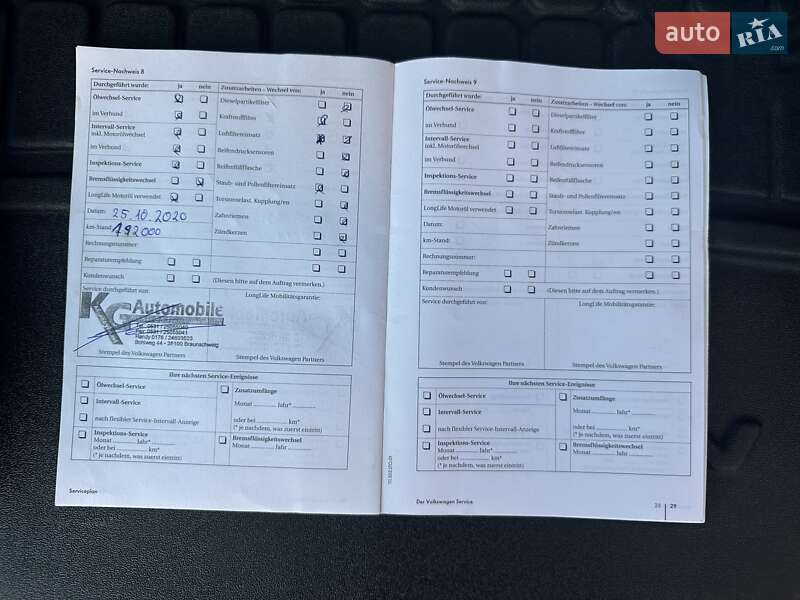 auto RIA .com
Service-Nachweis 8
Durchgeführt wurde: ja nein
Ölwechsel-Service
im Verbund
Intervall-Service
inkl. Motorölwechsel
im Verbund
Inspektions-Service
Bremsflüssigkeitswechsel
LongLife Motoröl verwendet
Datum: 25.10.2020
km-Stand: 192000
Rechnungsnummer:
Reparaturempfehlung
Kundenwunsch
Zusatzarbeiten – Wechsel von: ja nein
Dieselpartikelfilter
Kraftstofffilter
Luftfiltereinsatz
Reifendrucksensoren
Reifenfüllflasche
Staub- und Pollenfiltereinsatz
Torsionselast. Kupplung/en
Zahnriemen
Zündkerzen
(Diesen bitte auf dem Auftrag vermerken.)
Service durchgeführt von:
LongLife Mobilitätsgarantie:
KG Automobile
Bohlweg 44 - 38100 Braunschweig
Stempel des Volkswagen Partners
Stempel des Volkswagen Partners
Ihre nächsten Service-Ereignisse
Ölwechsel-Service
Intervall-Service
nach flexibler Service-Intervall-Anzeige
Inspektions-Service
Monat ............ Jahr* ............
oder bei ............ km*
(* je nachdem, was zuerst eintritt)
Zusatzumfänge
Monat ............ Jahr* ............
oder bei ............ km*
(* je nachdem, was zuerst eintritt)
Bremsflüssigkeitswechsel
Monat ............ Jahr ............
Serviceplan
Service-Nachweis 9
Durchgeführt wurde: ja nein
Ölwechsel-Service
im Verbund
Intervall-Service
inkl. Motorölwechsel
im Verbund
Inspektions-Service
Bremsflüssigkeitswechsel
LongLife Motoröl verwendet
Datum:
km-Stand:
Rechnungsnummer:
Reparaturempfehlung
Kundenwunsch
Zusatzarbeiten – Wechsel von: ja nein
Dieselpartikelfilter
Kraftstofffilter
Luftfiltereinsatz
Reifendrucksensoren
Reifenfüllflasche
Staub- und Pollenfiltereinsatz
Torsionselast. Kupplung/en
Zahnriemen
Zündkerzen
(Diesen bitte auf dem Auftrag vermerken.)
Service durchgeführt von:
LongLife Mobilitätsgarantie:
Stempel des Volkswagen Partners
Stempel des Volkswagen Partners
Ihre nächsten Service-Ereignisse
Ölwechsel-Service
Intervall-Service
nach flexibler Service-Intervall-Anzeige
Inspektions-Service
Monat ............ Jahr* ............
oder bei ............ km*
(* je nachdem, was zuerst eintritt)
Zusatzumfänge
Monat ............ Jahr* ............
oder bei ............ km*
(* je nachdem, was zuerst eintritt)
Bremsflüssigkeitswechsel
Monat ............ Jahr ............
Der Volkswagen Service
28 29